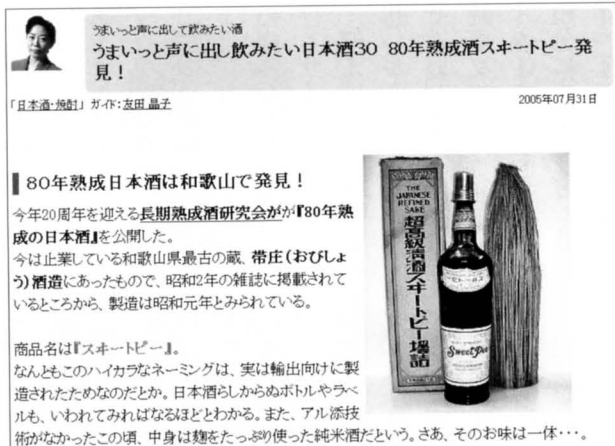 うまいっと声に出して飲みたい酒
うまいっと声に出し飲みたい日本酒30 80年熟成酒スヰートピー発
見！
「日本酒・焼酎」 ガイド：友田 晶子
2005年07月31日
80年熟成日本酒は和歌山で発見！
今年20周年を迎える長期熟成酒研究会がが『80年熟
成の日本酒』を公開した。
今は止業している和歌山県最古の蔵、帯庄（おびしょ
う）酒造にあったもので、昭和2年の雑誌に掲載されて
いるところから、製造は昭和元年とみられている。
商品名は『スヰートピー』。
なんともこのハイカラなネーミングは、実は輸出向けに製
造されたためなのだとか。日本酒らしからぬボトルやラベ
ルも、いわれてみればなるほどとわかる。また、アル添技
術がなかったこの頃、中身は麹をたっぷり使った純米酒だという。さあ、そのお味は一体・・・。
THE
JAPANESE
REFINED
SAKE
超高級清酒スヰートピー壜詰
Sweet Pea